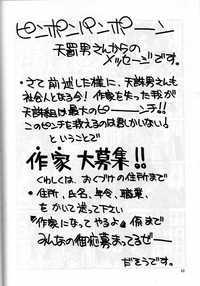 ピンポンパンポーン
天罰男さんからの
メッセージです。
・さて前述した様に、天誅男さんも
社会人となる今!作家を失った我が
天誅組は最大のピーーンチ!!
このピンチを救えるのは君しかいない!
ということで
作家大募集!!
くわしくは、おくづけの住所まで
・住所、氏名、年令、職業、
をかいて送って下さい
『作家になってやるよ』係まで
みんなの応募まってるぜー
だそうです。